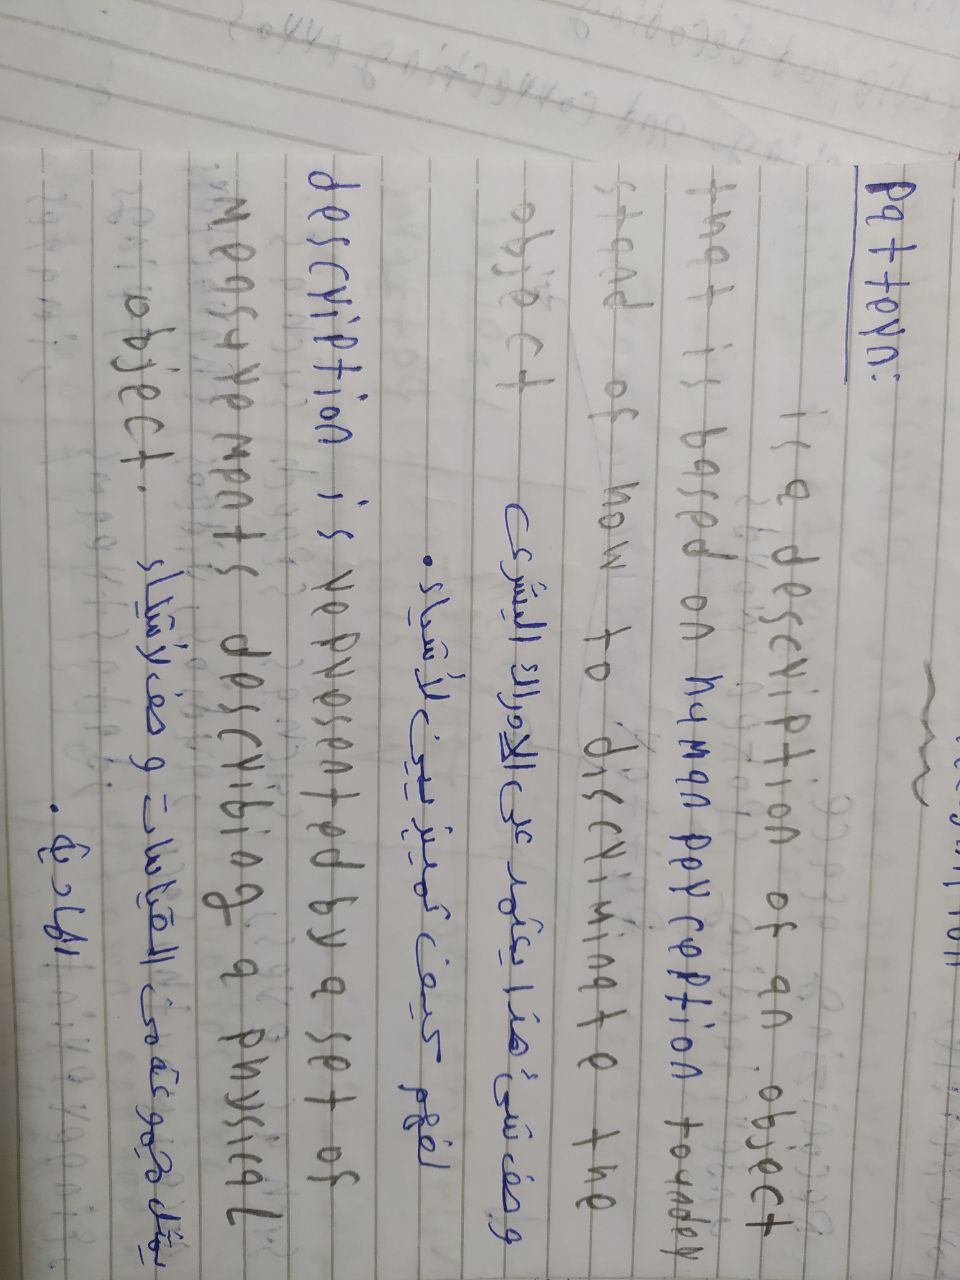 Pattern:
is a description of an object
that is based on human perception tounder
stand of how to discriminate the
object
وصف شئ هذا يعتمد على الادراك البشرى
لفهم كيف نميز بين الأشياء.
description is represented by a set of
measurements describing a physical
object.
يمثل مجموعة من القياسات و صف لأشياء
المادية.